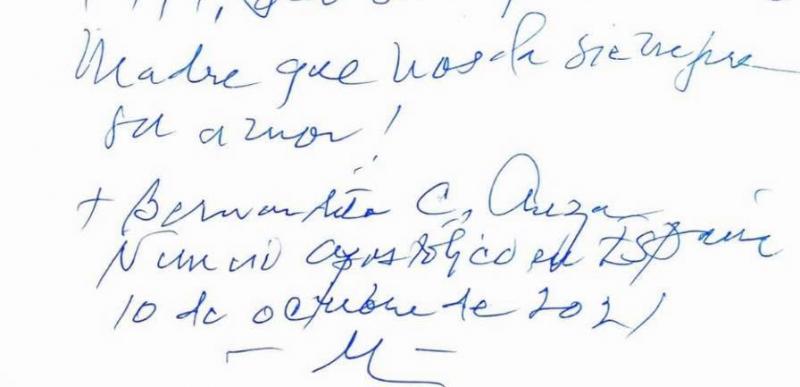 Madre que nos da siempre
su amor!
+ Bernardito C. Auza
Nuncio Apostólico en España
10 de octubre de 2021
- M -